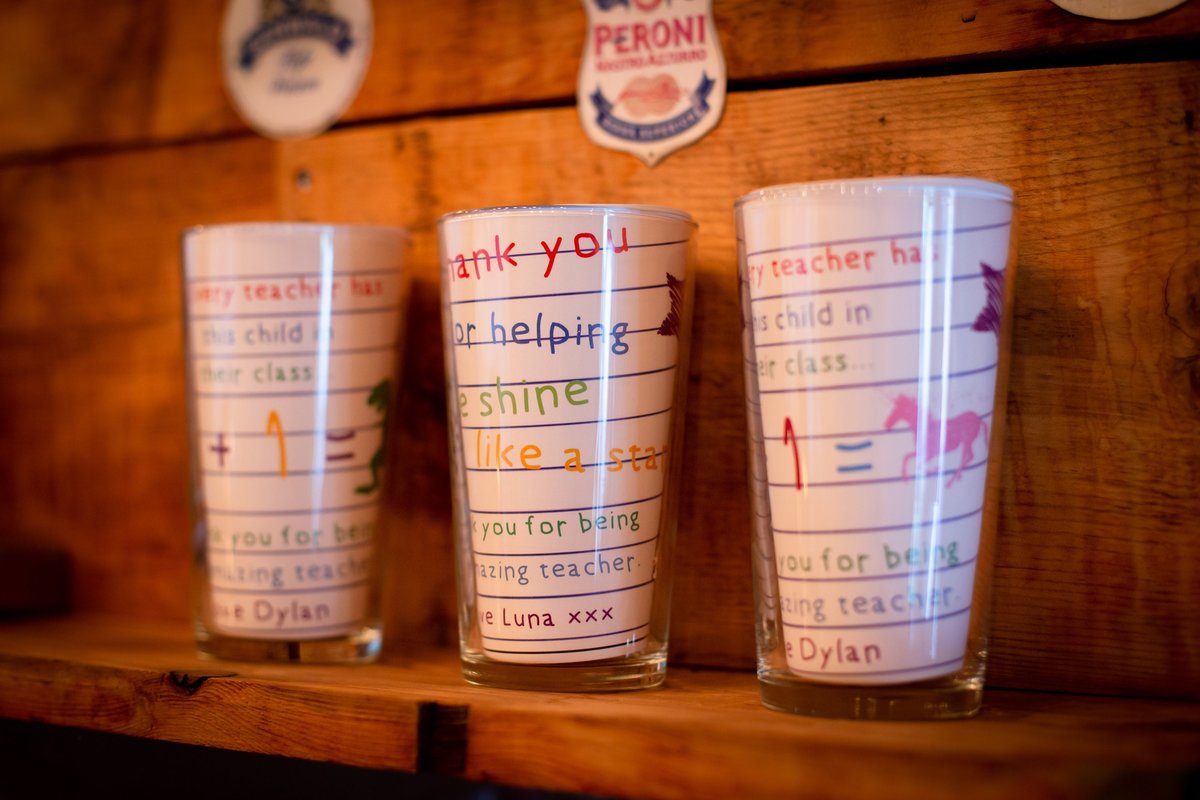 PERONI
NASTRO AZZURRO
very teacher has
this child in
their class
+ 1 =
you for bein
mazing teache
e Dylan
hank you
or helping
e shine
like a sta
k you for being
azing teacher.
ve Luna xxx
ry teacher has
his child in
eir class....
1 =
you for being
zing teacher.
e Dylan